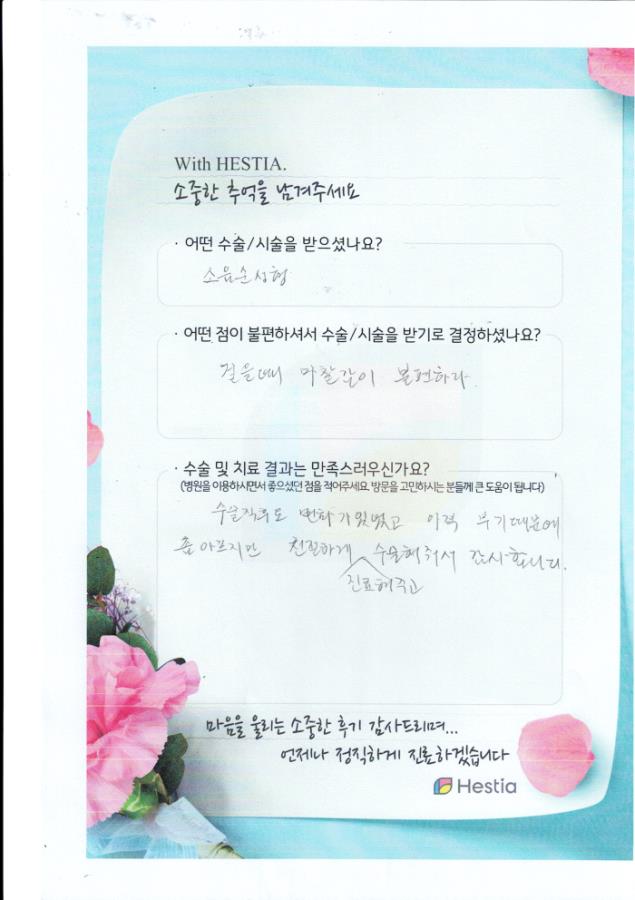 With HESTIA.
소중한 추억을 남겨주세요
· 어떤 수술/시술을 받으셨나요?
소음순성형
· 어떤 점이 불편하셔서 수술/시술을 받기로 결정하셨나요?
걸을때 마찰감이 불편하다.
· 수술 및 치료 결과는 만족스러우신가요?
(병원을 이용하시면서 좋으셨던 점을 적어주세요. 방문을 고민하시는 분들께 큰 도움이 됩니다)
수술직후도 변화가있었고 아직 부기때문에
좀 아프지만 친절하게 수술해줘서 감사합니다.
진료해주고
마음을 울리는 소중한 후기 감사드리며...
언제나 정직하게 진료하겠습니다
Hestia